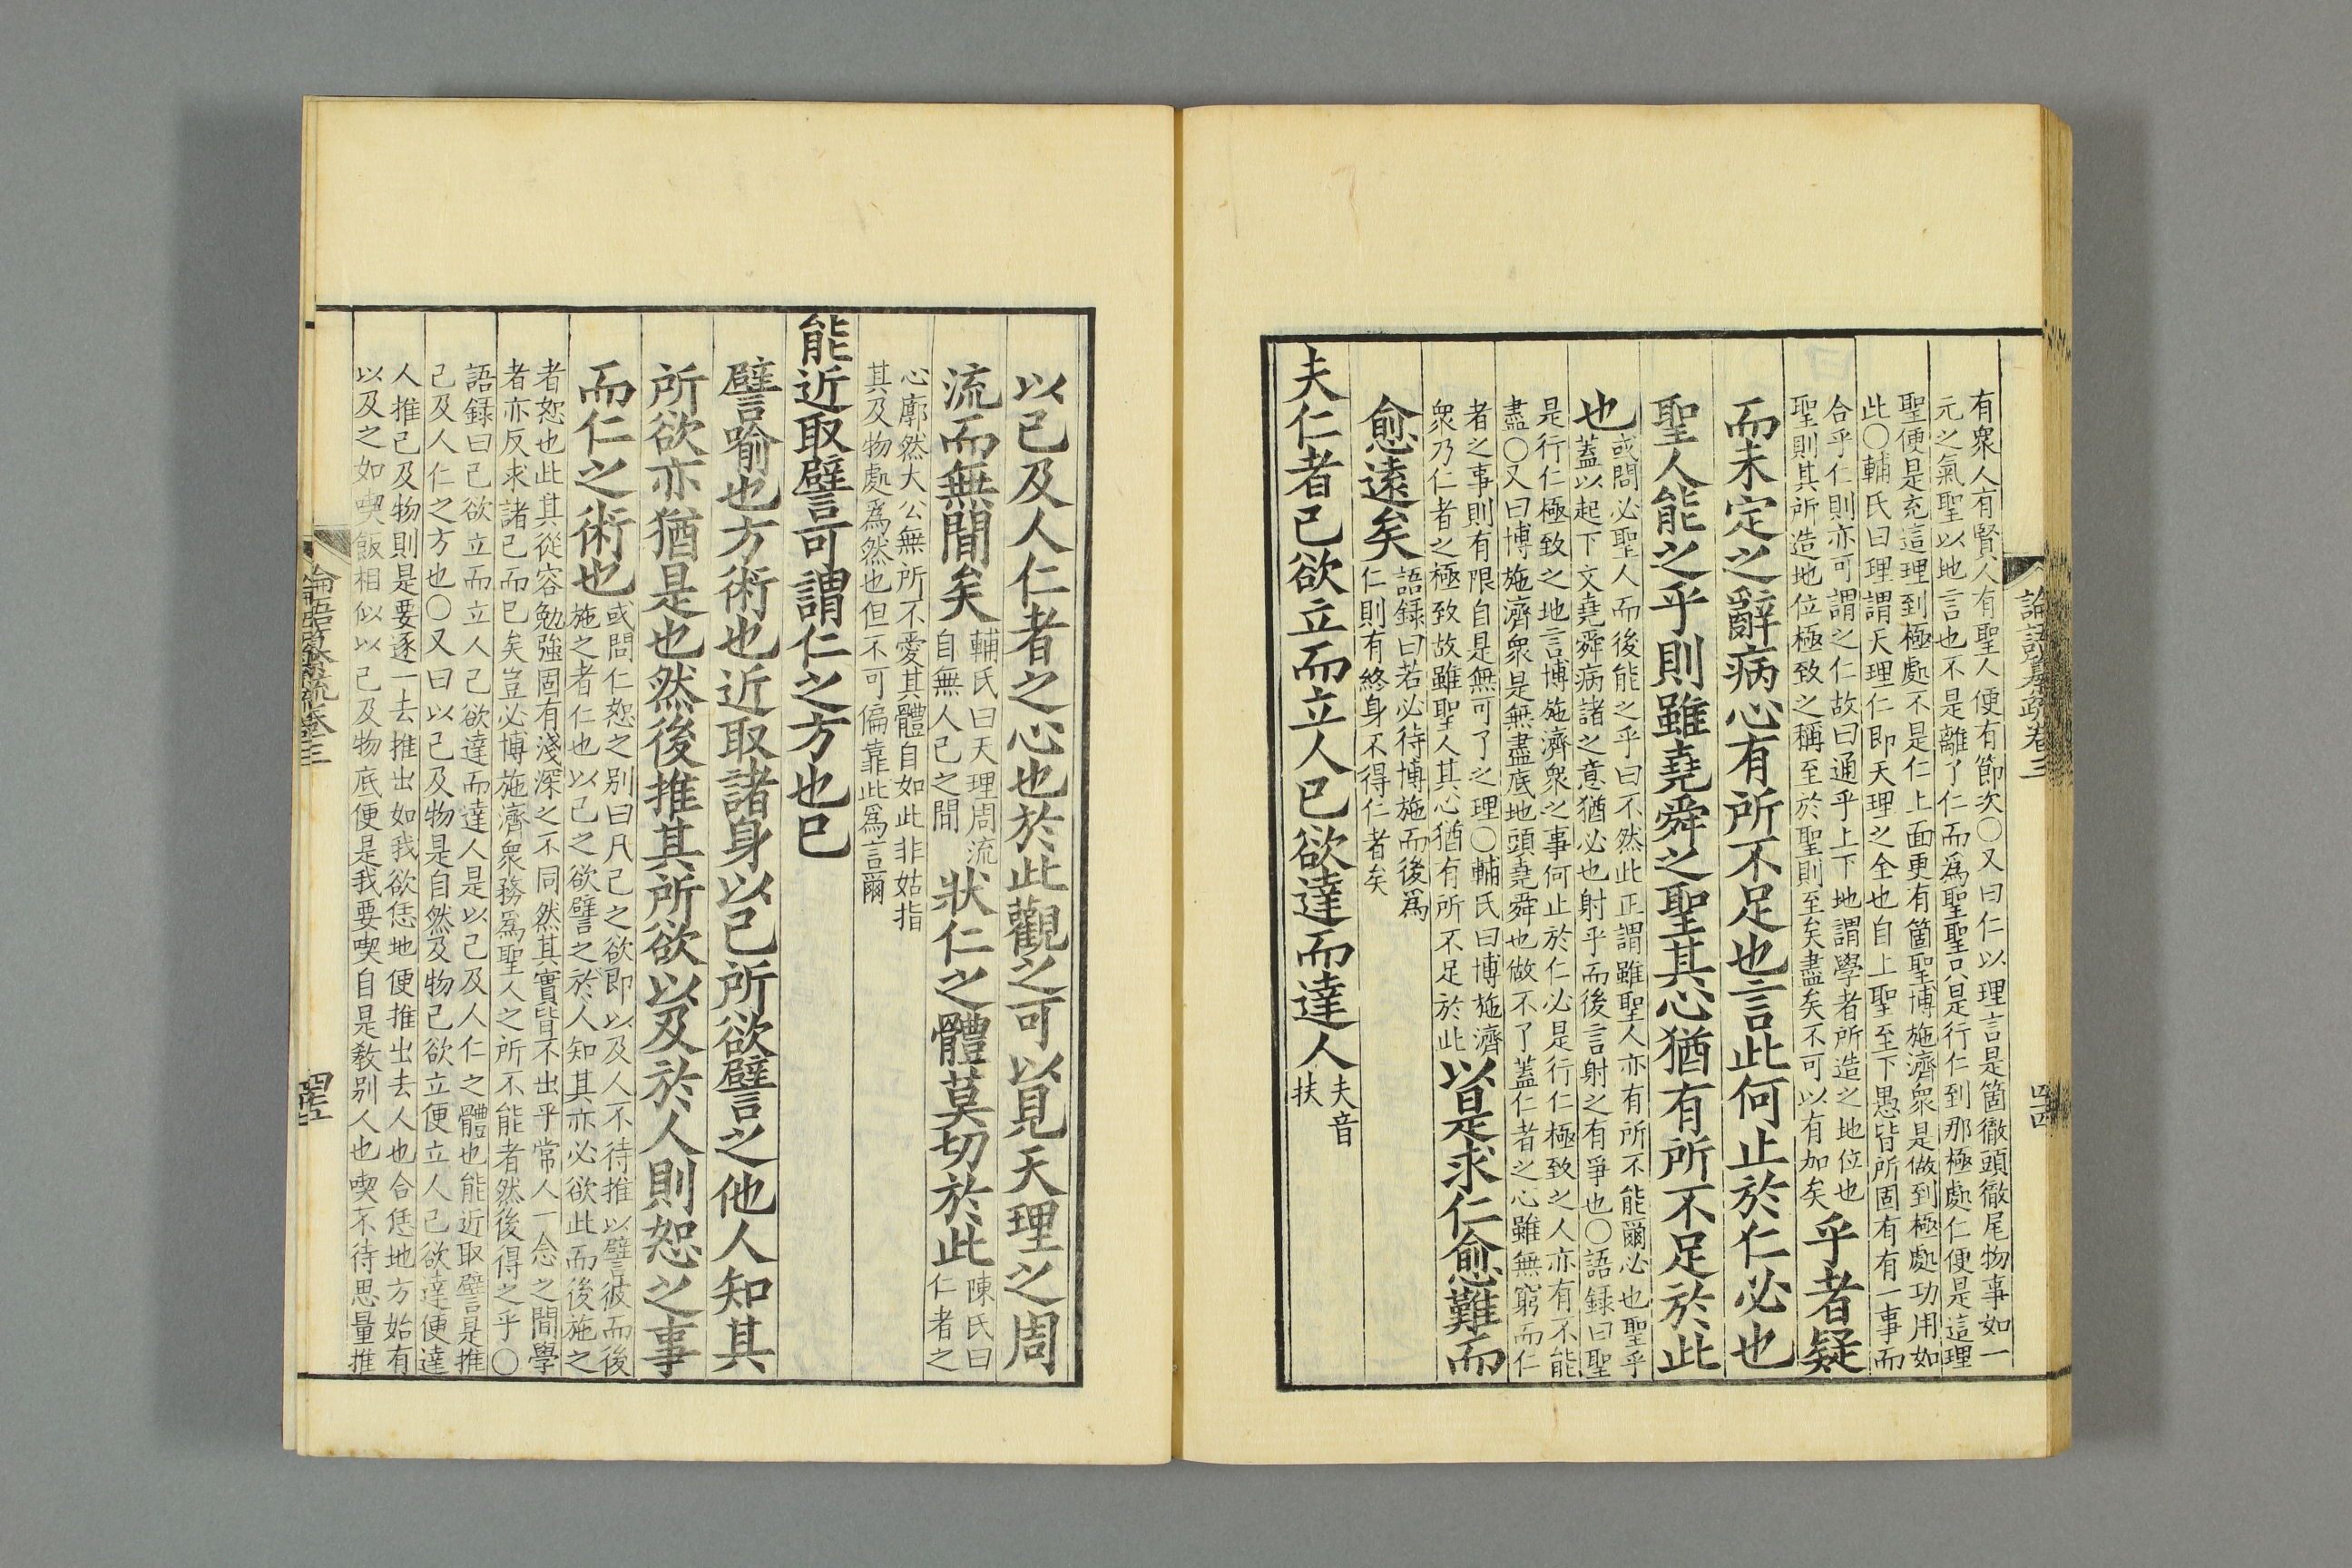 論語纂疏卷三
四十四
有衆人有賢人有聖人便有節次○又曰仁以理言是箇徹頭徹尾物事如一
元之氣聖以地言也不是離了仁而爲聖聖只是行仁到那極處仁便是這理
聖便是充這理到極處不是仁上面更有箇聖博施濟衆是做到極處功用如
此○輔氏曰理謂天理仁即天理之全也自上聖至下愚皆所固有有一事而
合乎仁則亦可謂之仁故曰通乎上下地謂學者所造之地位也
聖則其所造地位極致之稱至於聖則至矣盡矣不可以有加矣
乎者疑
而未定之辭病心有所不足也言此何止於仁必也
聖人能之乎則雖堯舜之聖其心猶有所不足於此
也
或問必聖人而後能之乎曰不然此正謂雖聖人亦有所不能爾必也聖乎
蓋以起下文堯舜病諸之意猶必也射乎而後言射之有爭也○語録曰聖
是行仁極致之地言博施濟衆之事何止於仁必是行仁極致之人亦有不能
盡○又曰博施濟衆是無盡底地頭堯舜也做不了蓋仁者之心雖無窮而仁
者之事則有限自是無可了之理○輔氏曰博施濟
衆乃仁者之極致故雖聖人其心猶有所不足於此
以是求仁愈難而
愈遠矣
語録曰若必待博施而後爲
仁則有終身不得仁者矣
夫仁者己欲立而立人己欲達而達人
夫音
扶
以己及人仁者之心也於此觀之可以見天理之周
流而無間矣
輔氏曰天理周流
自無人己之間
狀仁之體莫切於此
陳氏曰
仁者之
心廓然大公無所不愛其體自如此非姑指
其及物處爲然也但不可偏靠此爲言爾
能近取譬可謂仁之方也已
譬喻也方術也近取諸身以己所欲譬之他人知其
所欲亦猶是也然後推其所欲以及於人則恕之事
而仁之術也
或問仁恕之别曰凡己之欲即以及人不待推以譬彼而後
施之者仁也以己之欲譬之於人知其亦必欲此而後施之
者恕也此其從容勉強固有淺深之不同然其實皆不出乎常人一念之間學
者亦反求諸己而已矣豈必博施濟衆務爲聖人之所不能者然後得之乎○
語録曰己欲立而立人己欲達而達人是以己及人仁之體也能近取譬是推
己及人仁之方也○又曰以己及物是自然及物己欲立便立人己欲達便達
人推己及物則是要逐一去推出如我欲恁地便推出去人也合恁地方始有
以及之如喫飯相似以己及物底便是我要喫自是敎别人也喫不待思量推
論語纂疏卷三
四十五